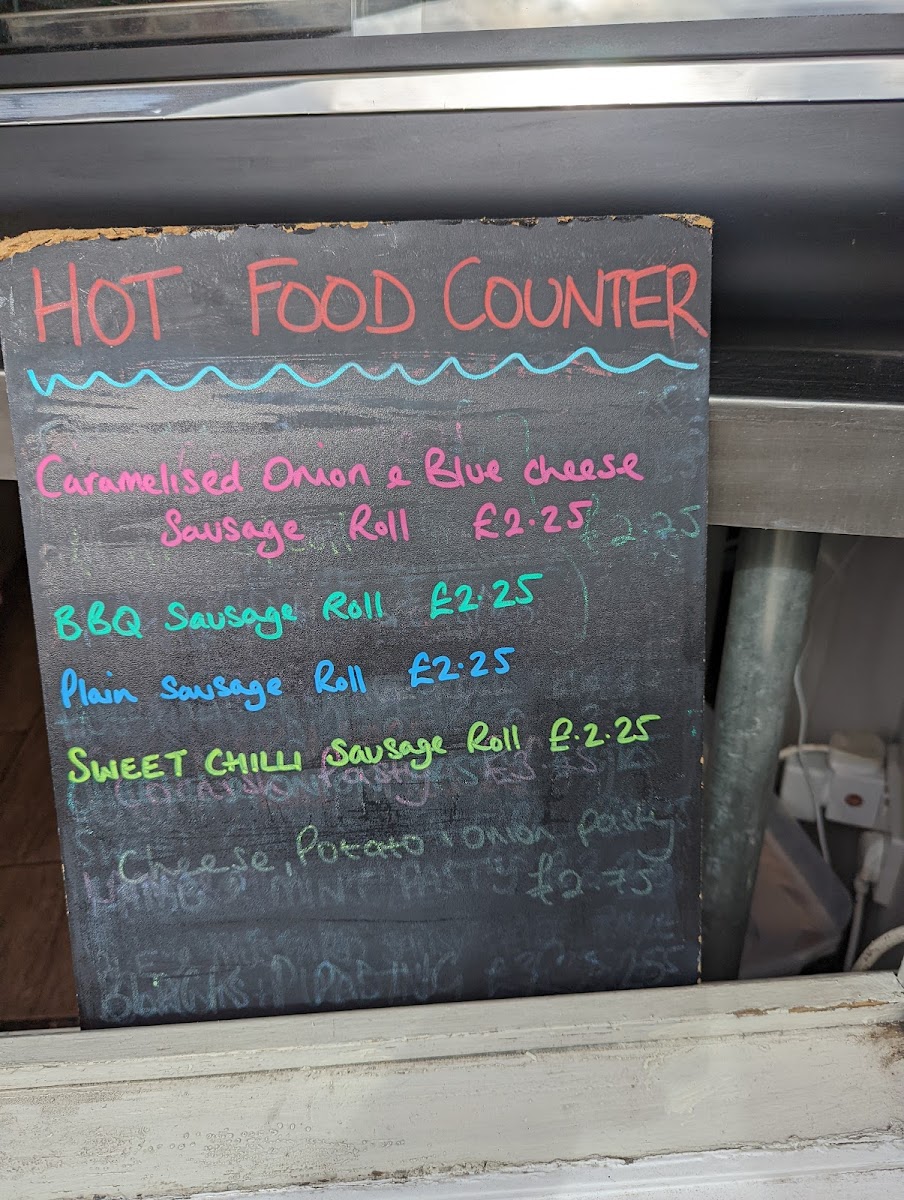 HOT FOOD COUNTER
Caramelised Onion & Blue cheese
Sausage Roll £2.25 £2.25
BBQ Sausage Roll £2.25
Plain Sausage Roll £2.25
SWEET CHILLI Sausage Roll £.2.25
Cheese, Potato & onion pasty
£2.75